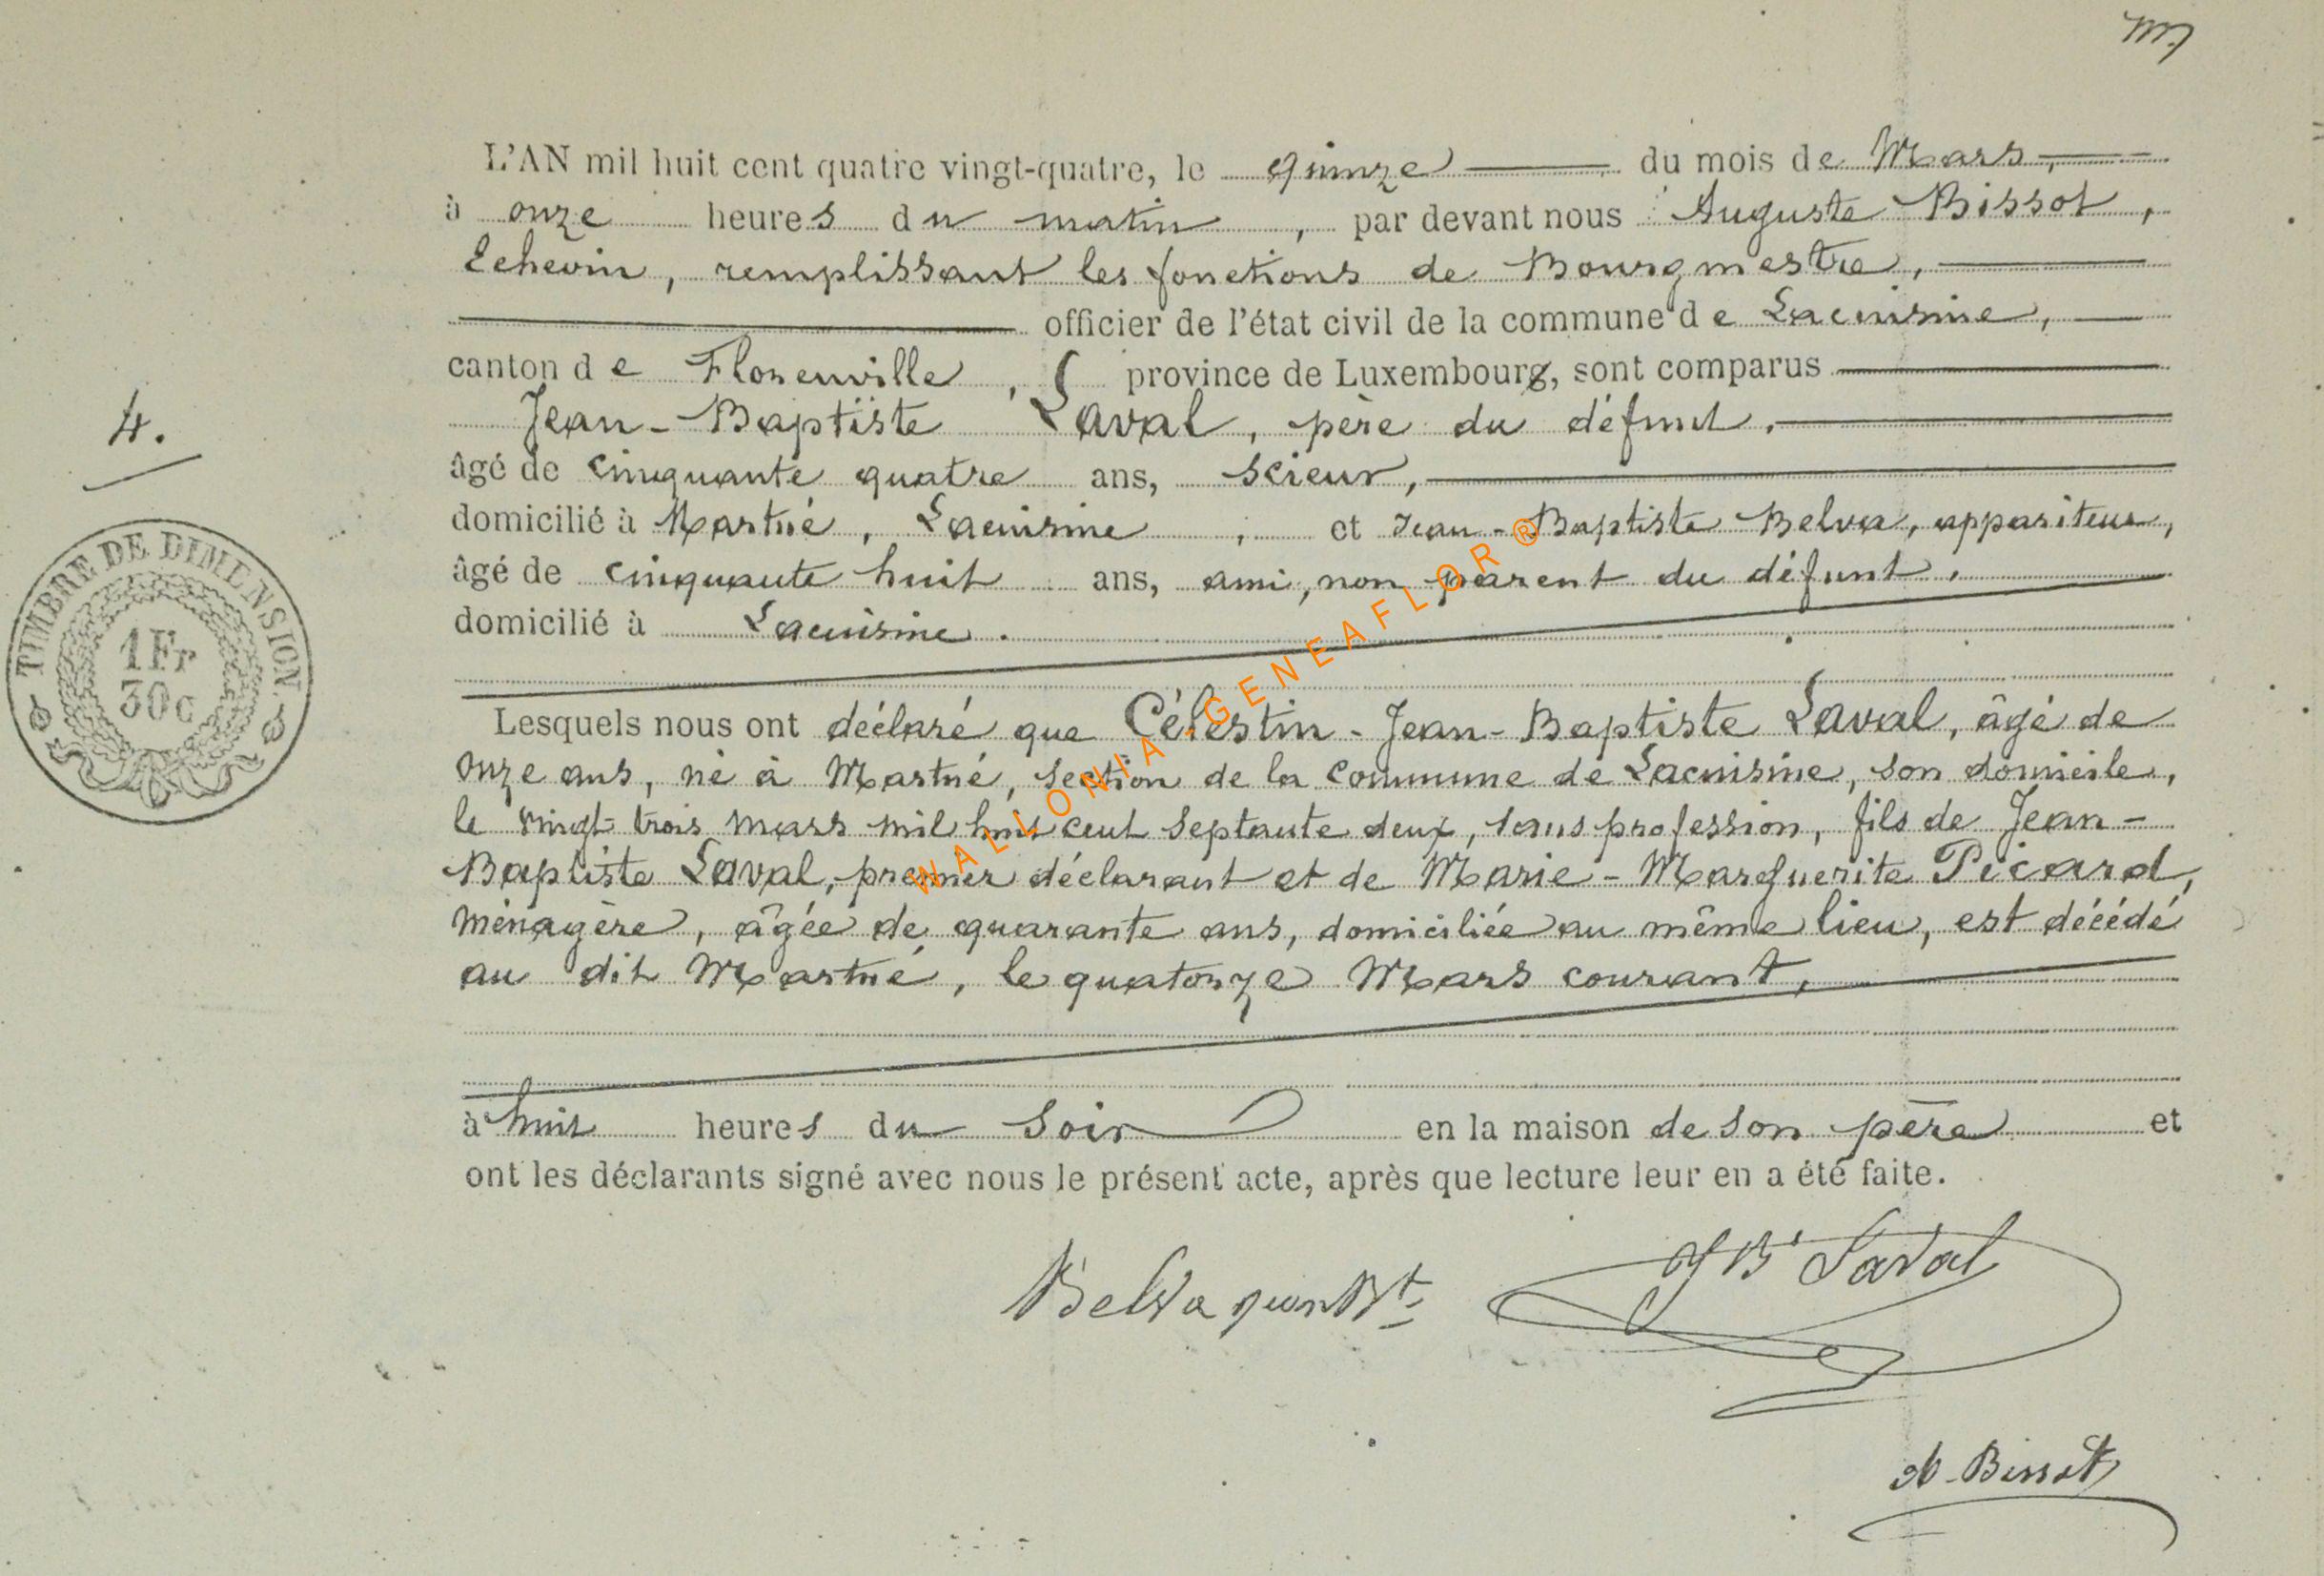 m
L'AN mil huit cent quatre vingt-quatre, le quinze du mois de Mars,
à onze heures du matin, par devant nous Auguste Bissot,
Echevin, remplissant les fonctions de Bourgmestre,
officier de l'état civil de la commune de Lacuisine,
canton de Florenville, province de Luxembourg, sont comparus
Jean-Baptiste Laval, père du défunt,
4.
âgé de cinquante quatre ans, scieur,
domicilié à Martué, Lacuisine, et Jean-Baptiste Belva, appariteur,
âgé de cinquante huit ans, ami, non parent du défunt,
domicilié à Lacuisine.
TIMBRE DE DIMENSION
1Fr
30c
Lesquels nous ont déclaré que Célestin-Jean-Baptiste Laval, âgé de
onze ans, né à Martué, section de la commune de Lacuisine, son domicile,
le vingt-trois mars mil huit cent septante deux, sans profession, fils de Jean-
Baptiste Laval, premier déclarant et de Marie-Marguerite Picard,
ménagère, âgée de quarante ans, domiciliée au même lieu, est décédé
au dit Martué, le quatorze Mars courant,
à huit heures du soir en la maison de son père et
ont les déclarants signé avec nous le présent acte, après que lecture leur en a été faite.
Belva jean Bt
JB Laval
A. Bissot
WALLONIA-GENEAFLOR®